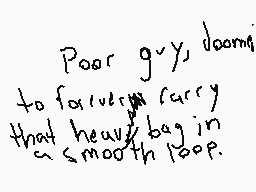 Poor guy, doomd
to forever carry
that heavy bag in
a smooth loop.